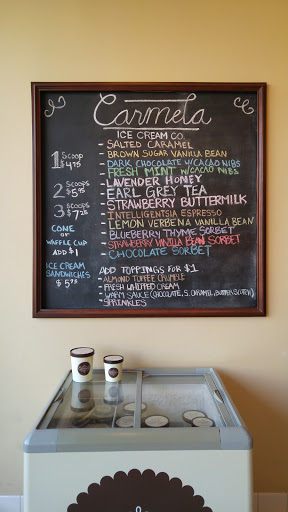 Carmela
ICE CREAM CO.
- SALTED CARAMEL
- BROWN SUGAR VANILLA BEAN
- DARK CHOCOLATE W/CACAO NIBS
- FRESH MINT W/CACAO NIBS
- LAVENDER HONEY
- EARL GREY TEA
- STRAWBERRY BUTTERMILK
- INTELLIGENTSIA ESPRESSO
- LEMON VERBENA VANILLA BEAN
- BLUEBERRY THYME SORBET
- STRAWBERRY VANILLA BEAN SORBET
- CHOCOLATE SORBET
ADD TOPPINGS FOR $1
- ALMOND TOFFEE CRUMBLE
- FRESH WHIPPED CREAM
- WARM SAUCE (CHOCOLATE, S. CARAMEL, BUTTERSCOTCH)
- SPRINKLES
1 SCOOP
$4.75
2 SCOOPS
$5.75
3 SCOOPS
$7.25
CONE
OR
WAFFLE CUP
ADD $1
ICE CREAM
SANDWICHES
$5.75